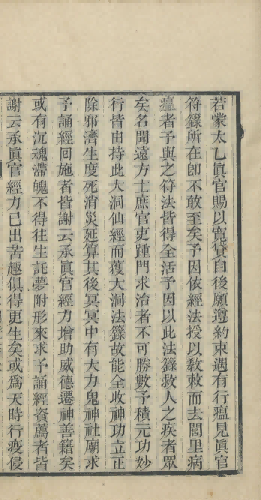 若蒙太乙眞官賜以寬貸自後願遵約束週有行瘟見眞官
符籙所在卽不敢至矣予因依經法授以敎敕而去閭里病
瘧者予與之符法皆得全活予因以此法籙救人之疾者眾
矣名聞遠方士庶官吏踵門求治者不可勝數予積元功妙
行皆由持此大洞仙經而獲大洞法籙故能全收神功立正
除邪濟生度死消災延算其後冥冥中有大力鬼神社廟求
予誦經回施者皆謝云承眞官經力增助威德遷神善籍矣
或有沉魂滯魄不得往生託夢附形來求予誦經資薦者皆
謝云承眞官經力已出苦趣俱得更生矣或爲天時行疫侵